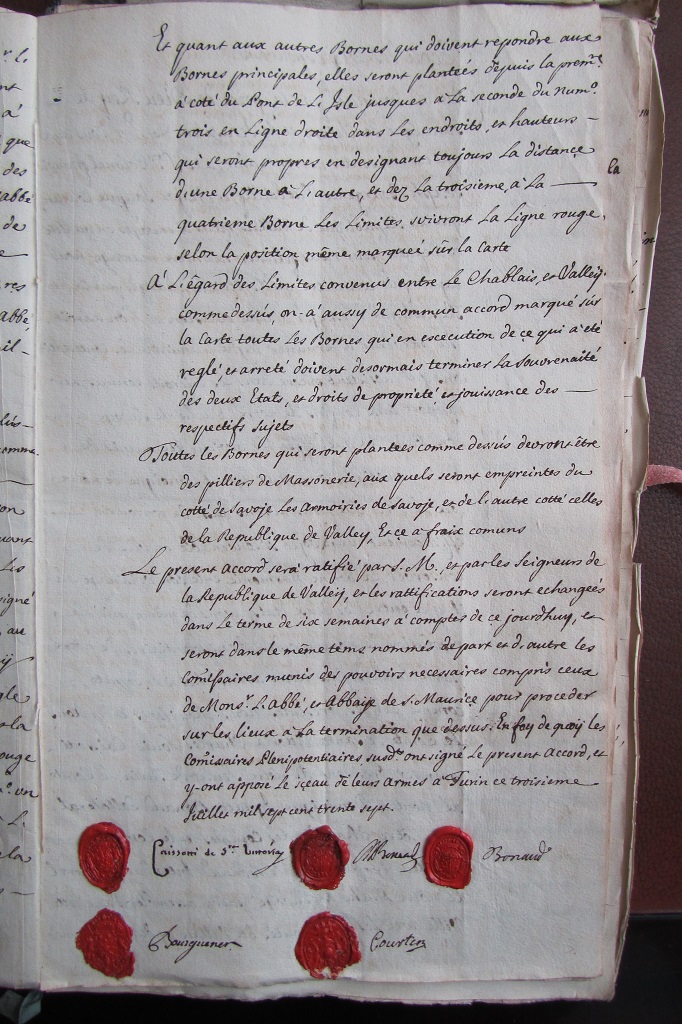 Et quant aux autres Bornes qui doivent repondre aux
Bornes principales, elles seront plantées depuis la prem.e
a' coté du Pont de L'Isle jusques a La seconde du Num.o
trois en Ligne droite dans Les endroits, et hauteurs –
qui seront propres en designant toujours La distance
d'une Borne a L'autre, et dez La troisieme, a La —
quatrieme Borne Les Limites, suivront La Ligne rouge,
selon la position même marqueé sur la Carte
A' L'égard des Limites convenus entre Le Chablais, et Valleij
comme dessus, on a' aussy de commun accord marqué sur
la Carte toutes Les Bornes qui en escecution de ce qui a' eté
reglé, et arreté doivent desormais terminer La Souvrenaité
des deux Etats, et droits de proprieté et jouissance des —
respectifs sujets
Touttes les Bornes qui seront plantées comme dessus devront être
des pilliers de Massonerie, aux quels seront empreintes du
cotté de Savoje Les Armoiries de Savoje, et de L'autre cotté celles
de la Republique de Valley, Et ce a' fraix comuns
Le present Accord sera ratifié par S. M. et par les Seigneurs de
la Republique de Valleij, et les rattifications seront echangeés
dans Le terme de six semaines a' comptes de ce jourdhuy, et
seront dans le même tems nommés de part et d'autre les
Comissaires munis des pouvoirs necessaires compris ceux
de Mons.r L'Abbé, et Abbaije de S. Maurice pour proceder
sur les lieux a La termination que dessus. En foy de quoij les
Comissaires Plenipotentiaires susd.ts ont signé Le present Accord, et
y ont apposé Le sçeau de leurs Armes a' Turin ce troisieme
Juillet mil sept cent trente sept.
Caissotti de S.te Vittoria Bonaud
Bourguener Courten
La